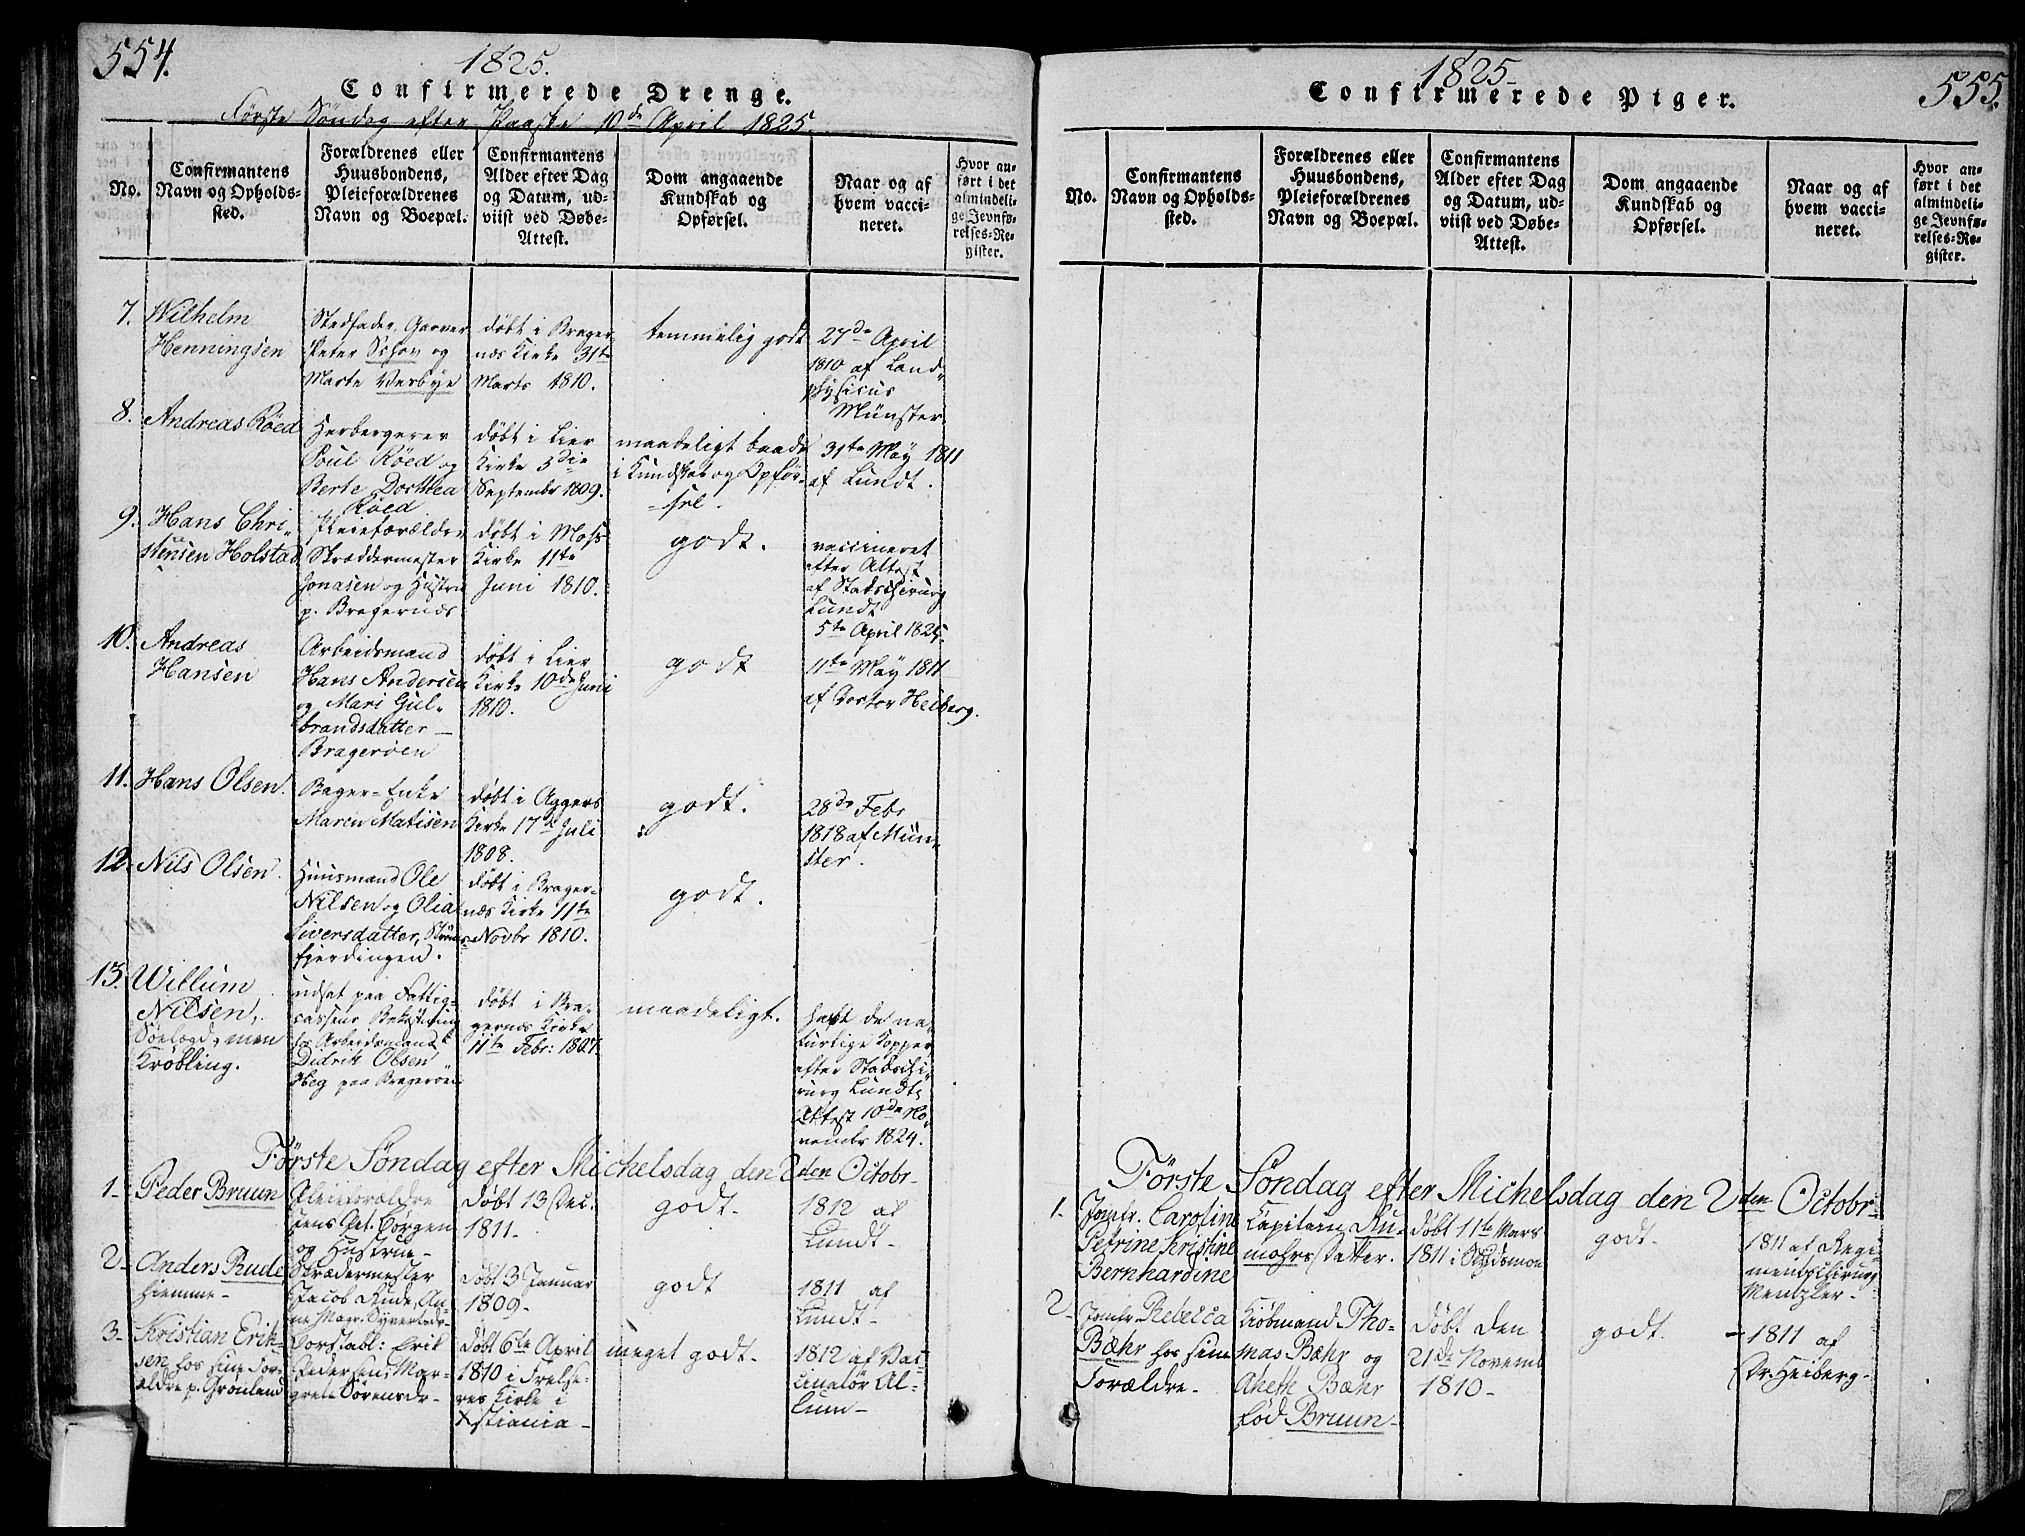 554.
1825.
Confirmerede Drenge.
Første Søndag efter Paaske 10de April 1825.
No.
Confirmantens
Navn og Opholds-
sted.
Forældrenes eller
Huusbondens,
Pleieforældrenes
Navn og Boepæl.
Confirmantens
Alder efter Dag
og Datum, ud-
viist ved Døbe-
Attest.
Dom angaaende
Kundskab og
Opførsel.
Naar og af
hvem vacci-
neret.
Hvor an-
ført i det
almindeli-
ge Jevnfø-
relses-Re-
gister.
7.
Wilhelm
Henningsen
Stedfader, Garver
Peter Schou og
Marte Verbye
døbt i Brager-
næs Kirke 31te
Marts 1810.
temmelig godt
27de April
1810 af Land-
physicus
Münster.
8.
Andreas Röed
Herbergerer
Poul Röed og
Berte Dorthea
Röed
døbt i Lier
Kirke 3die
September 1809.
maadeligt baade
i Kundskab og Opfør-
sel.
31te May 1811
af Lundt.
9.
Hans Chri-
stensen Holstad
Pleieforældre
Skræddermester
Jonasen og Hustru
p. Bragernæs
døbt i Moss
Kirke 11te
Juni 1810.
godt.
vaccineret
efter Attest
af Stadschirurg
Lundt
5te April 1825.
10.
Andreas
Hansen
Arbeidsmand
Hans Andersen
og Mari Gul-
brandsdatter
Brageröen
døbt i Lier
Kirke 10de Juni
1810.
godt
11te May 1811
af Doctor Heiberg.
11.
Hans Olsen.
Bager-Enke
Maren Matisen
døbt i Aggers
Kirke 17de Juli
1808.
godt.
28de Febr
1818 af Mün-
ster.
12.
Nils Olsen.
Huusmand Ole
Nilsen og Olia
Siversdatter, Ströms-
fjerdingen.
døbt i Brager-
næs Kirke 11te
Novbr 1810.
godt.
13.
Willum
Nilsen,
men
Kröbling.
udsat paa Fattig-
cassens Bekostning
hos Arbeidsmand
Didrik Olsen
Heg paa Brageröen
døbt i Bra-
gernæs Kirke
11te Febr: 1807.
maadeligt.
havt de na-
turlige Kopper
efter Stadschi-
rurg Lundts
Attest 10de No-
vembr 1824.
Første Søndag efter Michelsdag den 2den Octobr-
1-
Peder Bruun
Pleieforældre
Jens Pet. Börgen
og Hustrue-
Døbt 13 Dec.
1811-
godt-
1812 af
Lundt-
2-
Anders Rude
hiemme-
Skrædermester
Jacob Rude, An-
ne Mar. Syvertsdr-
Døbt 3 Januar
1809-
godt
1811 af
Lundt-
3-
Kristian Erik-
sen, hos sine For-
ældre p. Grönland
Constabl: Erik
Pedersen, Mar-
grete Sörensdr-
Døbt 6te April
1810 i Frelse-
res Kirke i
Xstiania-
meget godt-
1812 af Vac-
cinatör Al-
lum-
1825-
555.
Confirmerede Piger.
No.
Confirmantens
Navn og Opholds-
sted.
Forældrenes eller
Huusbondens,
Pleieforældrenes
Navn og Boepæl.
Confirmantens
Alder efter Dag
og Datum, ud-
viist ved Døbe-
Attest.
Dom angaaende
Kundskab og
Opførsel.
Naar og af
hvem vacci-
neret.
Hvor an-
ført i det
almindeli-
ge Jevnfø-
relses-Re-
gister.
Første Søndag efter Michelsdag den 2den Octobr-
1.
Jomfr. Caroline
Petrine Kristine
Bernhardine
Capitain Ru-
mohrs Datter.
Døbt 11te Mars
1811 i
godt-
1811 af Regi-
mentschirurg
Mentzler-
2-
Jomfr Rebecca
Bæhr hos sine
Forældre-
Kiöbmand Tho-
mas Bæhr og
Bæhr
född Bruun-
Døbt den
21de Novemb
1810-
godt.
-1811 af
Dr. Heiberg-